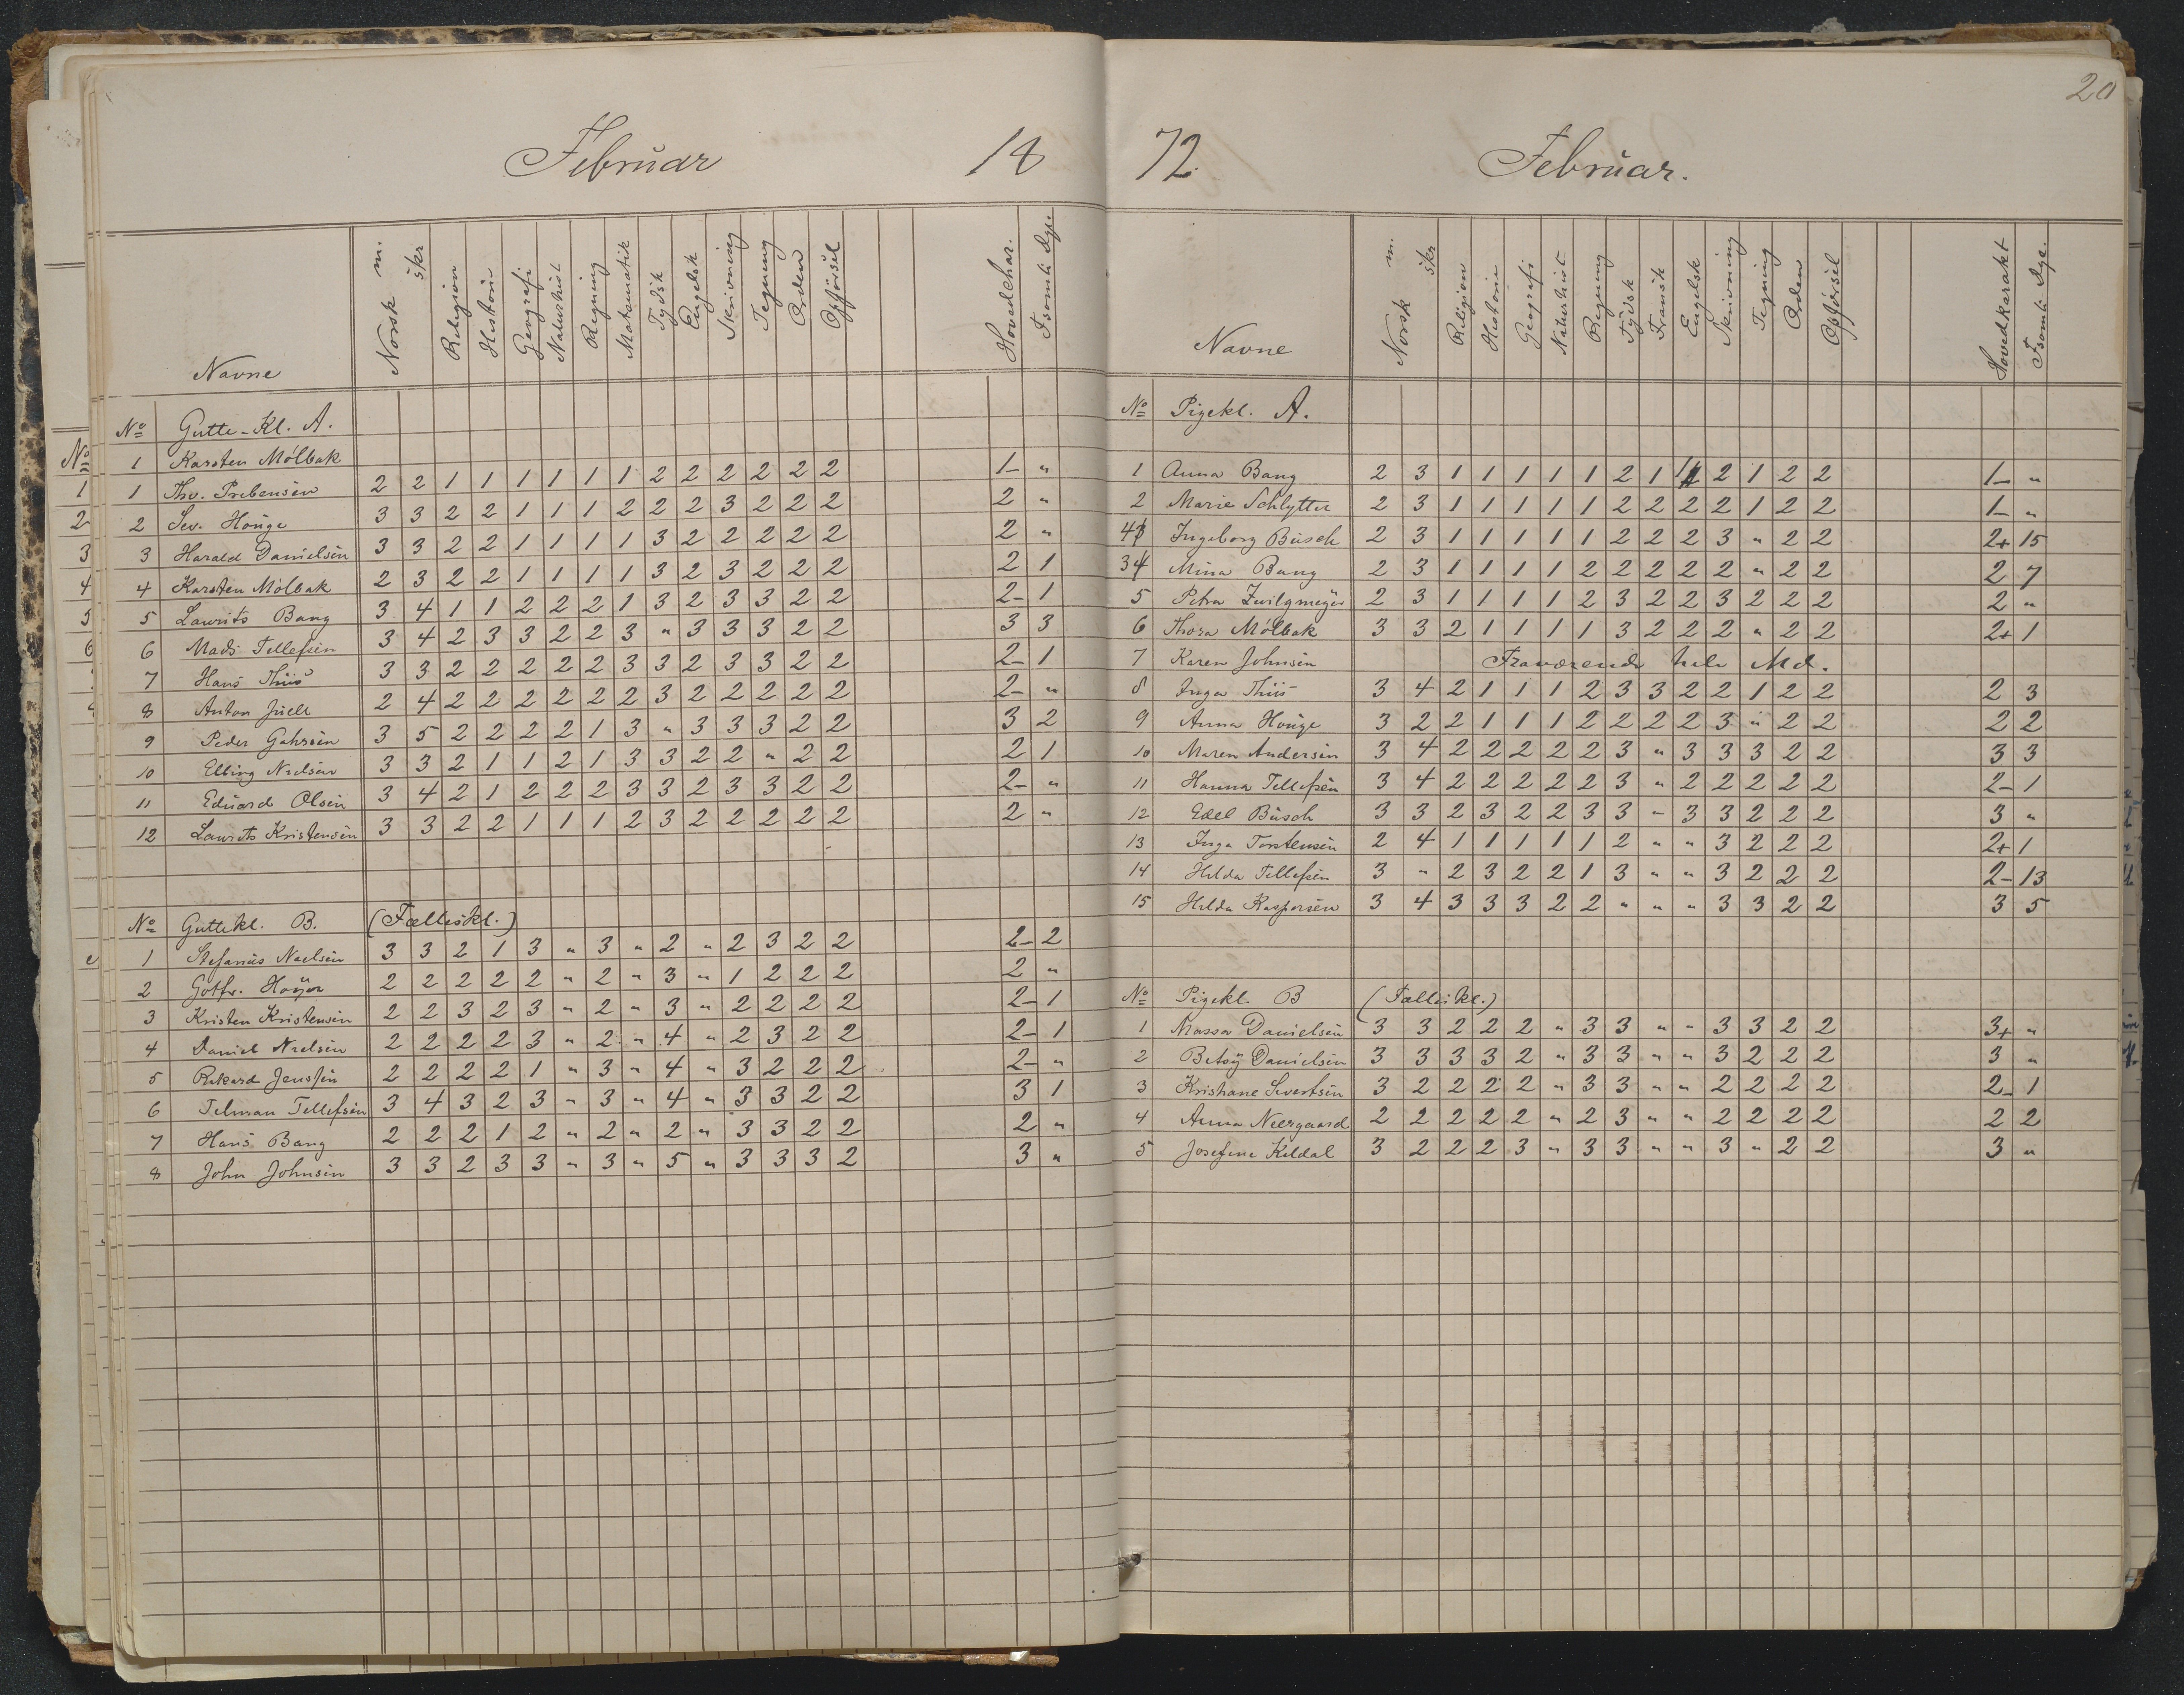 20
Februar 18
Navne Norsk m. skr Religion Historie Geografi Naturhist Regning Mathematik Tydsk Engelsk Skrivning Tegning Orden Opførsel Hovedchar. Fsömte Dge.
No Gutte-Kl. A.
1 Karsten Mölbak
1 Thv. Prebensen 2 2 1 1 1 1 1 1 2 2 2 2 2 2 1- "
2 Sev. Houge 3 3 2 2 1 1 1 2 2 2 3 2 2 2 2 "
3 Harald Danielsen 3 3 2 2 1 1 1 1 3 2 2 2 2 2 2 "
4 Karsten Mölbak 2 3 2 2 1 1 1 1 3 2 3 2 2 2 2 1
5 Laurits Bang 3 4 1 1 2 2 2 1 3 2 3 3 2 2 2- 1
6 Mads Tellefsen 3 4 2 3 3 2 2 3 " 3 3 3 2 2 3 3
7 Hans Thiis 3 3 2 2 2 2 2 3 3 2 3 3 2 2 2- 1
8 Anton Juell 2 4 2 2 2 2 2 2 3 2 2 2 2 2 2- "
9 Peder Gahrsen 3 5 2 2 2 2 1 3 " 3 3 3 2 2 3 2
10 Elling Nielsen 3 3 2 1 1 2 1 3 3 2 2 " 2 2 2 1
11 Eduard Olsen 3 4 2 1 2 2 2 3 3 2 3 3 2 2 2- "
12 Laurits Kristensen 3 3 2 2 1 1 1 2 3 2 2 2 2 2 2 "
No Guttekl. B. (Fælleskl.)
1 Stefanus Naelsen 3 3 2 1 3 " 3 " 2 " 2 3 2 2 2- 2
2 Gotfr. Høyer 2 2 2 2 2 " 2 " 3 " 1 2 2 2 2 "
3 Kristen Kristensen 2 2 3 2 3 " 2 " 3 " 2 2 2 2 2- 1
4 Daniel Nielsen 2 2 2 2 3 " 2 " 4 " 2 3 2 2 2- 1
5 Rikard Jenssen 2 2 2 2 1 " 3 " 4 " 3 2 2 2 2- "
6 Telman Tellefsen 3 4 3 2 3 " 3 " 4 " 3 3 2 2 3 1
7 Hans Bang 2 2 2 1 2 " 2 " 2 " 3 3 2 2 2 "
8 John Johnsen 3 3 2 3 3 " 3 " 5 " 3 3 3 2 3 "
72. Februar.
Navne Norsk m. skr Religion Historie Geografi Naturhist Regning Tydsk Fransk Engelsk Skrivning Tegning Orden Opførsel Hovedkarakt Fsömte Dge.
No Pigekl. A.
1 Anna Bang 2 3 1 1 1 1 1 2 1 1 2 1 2 2 1- "
2 Marie Schlytter 2 3 1 1 1 1 1 2 2 2 2 1 2 2 1- "
4 Ingeborg Busch 2 3 1 1 1 1 1 2 2 2 3 " 2 2 2+ 15
3 Mina Bang 2 3 1 1 1 1 2 2 2 2 2 " 2 2 2 7
5 Petra Zwilgmeyer 2 3 1 1 1 1 2 3 2 2 3 2 2 2 2 "
6 Thora Mölbak 3 3 2 1 1 1 1 3 2 2 2 " 2 2 2+ 1
7 Karen Johnsen Fraværende hele Md.
8 Inga Thiis 3 4 2 1 1 1 2 3 3 2 2 1 2 2 2 3
9 Anna Houge 3 2 2 1 1 1 2 2 2 2 3 " 2 2 2 2
10 Maren Andersen 3 4 2 2 2 2 2 3 " 3 3 3 2 2 3 3
11 Hanna Tellefsen 3 4 2 2 2 2 2 3 " 2 2 2 2 2 2- 1
12 Edel Busch 3 3 2 3 2 2 3 3 - 3 3 2 2 2 3 "
13 Inga Torstensen 2 4 1 1 1 1 1 2 " " 3 2 2 2 2+ 1
14 Hilda Tellefsen 3 " 2 3 2 2 1 3 " " 3 2 2 2 2- 13
15 Hilda Kaspersen 3 4 3 3 3 2 2 " " " 3 3 2 2 3 5
No Pigekl. B (Fælleskl.)
1 Massa Danielsen 3 3 2 2 2 " 3 3 " " 3 3 2 2 3+ "
2 Betsy Danielsen 3 3 3 3 2 " 3 3 " " 3 2 2 2 3 "
3 Kristiane Sivertsen 3 2 2 2 2 " 3 3 " " 2 2 2 2 2- 1
4 Anna Neergaard 2 2 2 2 2 " 2 3 " " 2 2 2 2 2 2
5 Josefine Kildal 3 2 2 2 3 " 3 3 " " 3 " 2 2 3 "